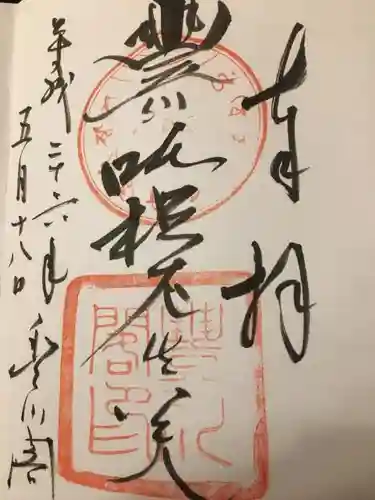 奉拝
豐川吒枳尼真天
豐川
閣印
平成二十六年
五月十八日 豐川閣